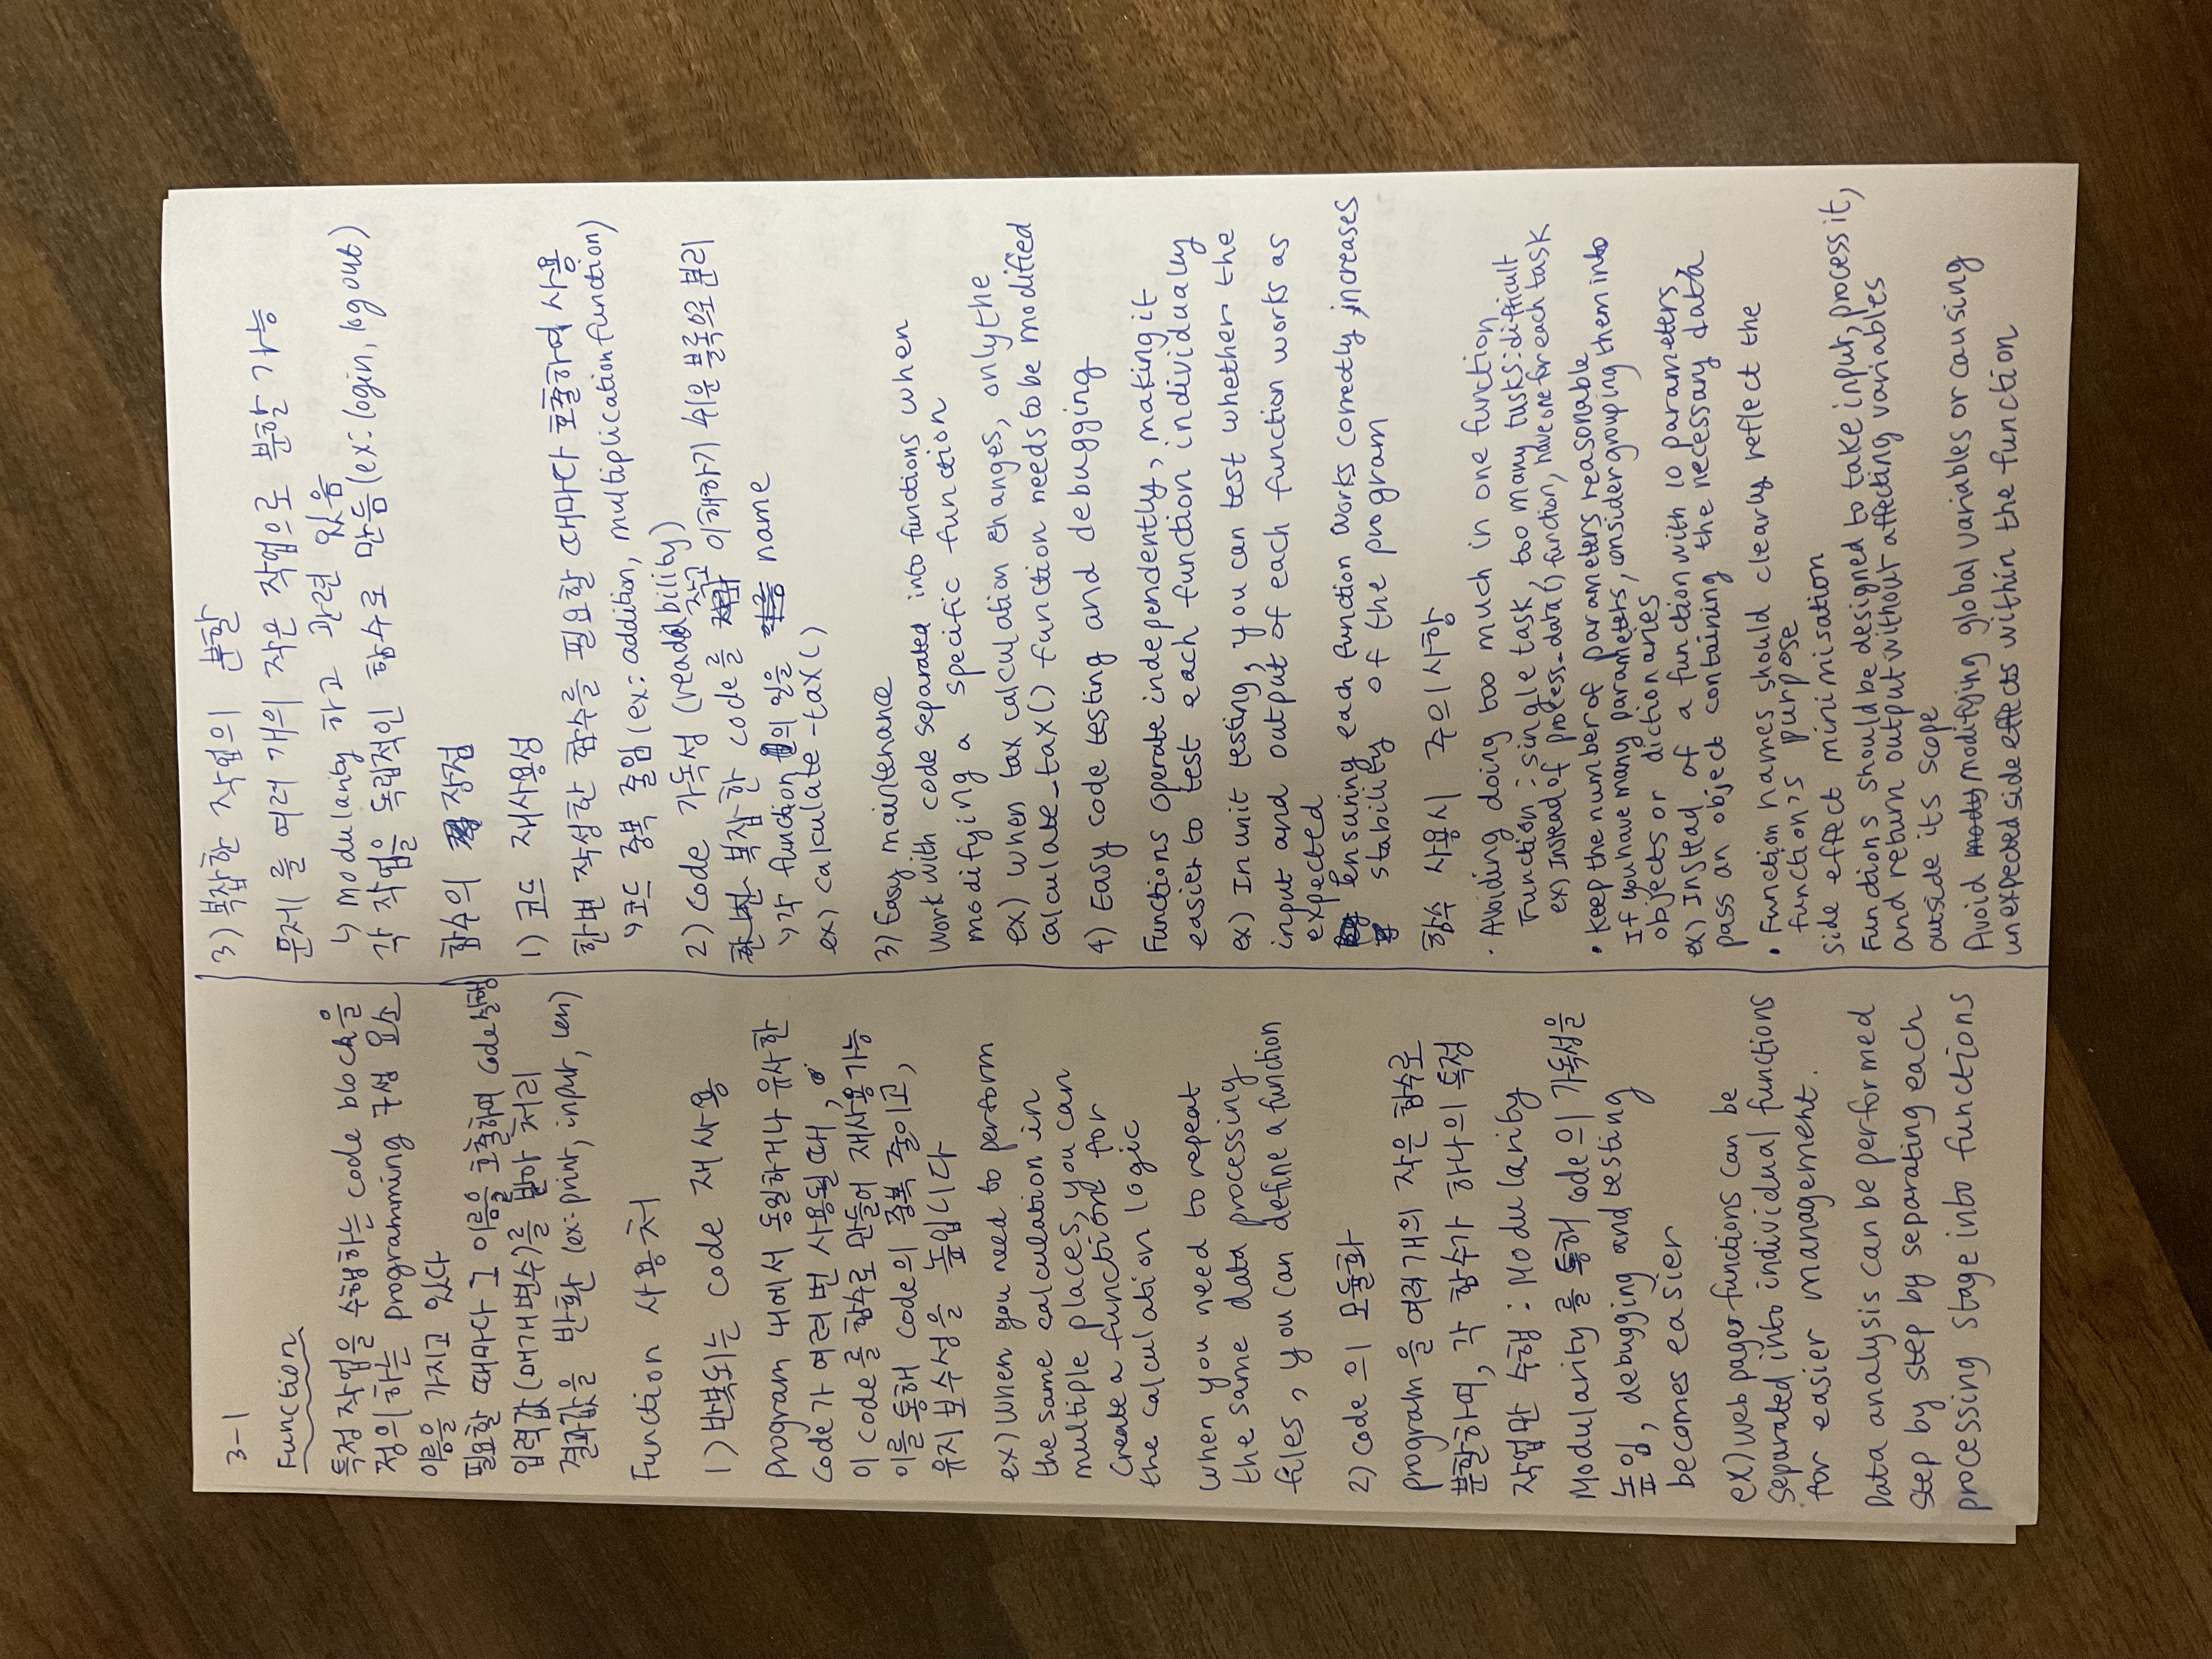 3-1
Function
특정 작업을 수행하는 code block을
정의하는 programming 구성 요소
이름을 가지고 있다
필요할 때마다 그 이름을 호출하여 code실행
입력값(매개변수)를 받아 처리
결과값을 반환 (ex: print, input, len)
Function 사용처
1) 반복되는 code 재사용
program 내에서 동일하거나 유사한
code가 여러 번 사용될 때,
이 code를 함수로 만들어 재사용가능
이를 통해 code의 중복 줄이고,
유지보수성을 높입니다
ex) When you need to perform
the same calculation in
multiple places, you can
create a function for
the calculation logic
When you need to repeat
the same data processing
files, you can define a function
2) code의 모듈화
program을 여러개의 작은 함수로
분할하여, 각 함수가 하나의 특정
작업만 수행: Modularity
Modularity를 통해 code의 가독성을
높임, debugging and testing
becomes easier
ex) web page functions can be
separated into individual functions
for easier management.
Data analysis can be performed
step by step by separating each
processing stage into functions
3) 복잡한 작업의 분할
문제를 여러 개의 작은 작업으로 분할 가능
↳ modularity 하고 관련 있음
각 작업을 독립적인 함수로 만듦 (ex: login, log out)
함수의 장점
1) 코드 재사용성
한번 작성한 함수를 필요할 때마다 호출하여 사용
↳ 코드 중복 줄임 (ex: addition, multiplication function)
2) Code 가독성 (readability)
복잡한 code를 작고 이해하기 쉬운 블록으로 분리
↳ 각 function의 일을 name
ex) calculate-tax()
3) Easy maintenance
Work with code separated into functions when
modifying a specific function
ex) When tax calculation changes, only the
calculate_tax() function needs to be modified
4) Easy code testing and debugging
Functions operate independently, making it
easier to test each function individually
ex) In unit testing, you can test whether the
input and output of each function works as
expected
Ensuring each function works correctly increases
stability of the program
함수 사용시 주의사항
· Avoiding doing too much in one function
Function: single task, too many tasks: difficult
ex) Instead of process_data() function, have one for each task
• Keep the number of parameters reasonable
If you have many parameters, consider grouping them into
objects or dictionaries
ex) Instead of a function with 10 parameters,
pass an object containing the necessary data
• Function names should clearly reflect the
function's purpose
side effect minimisation
Functions should be designed to take input, process it,
and return output without affecting variables
outside its scope
Avoid modifying global variables or causing
unexpected side effects within the function